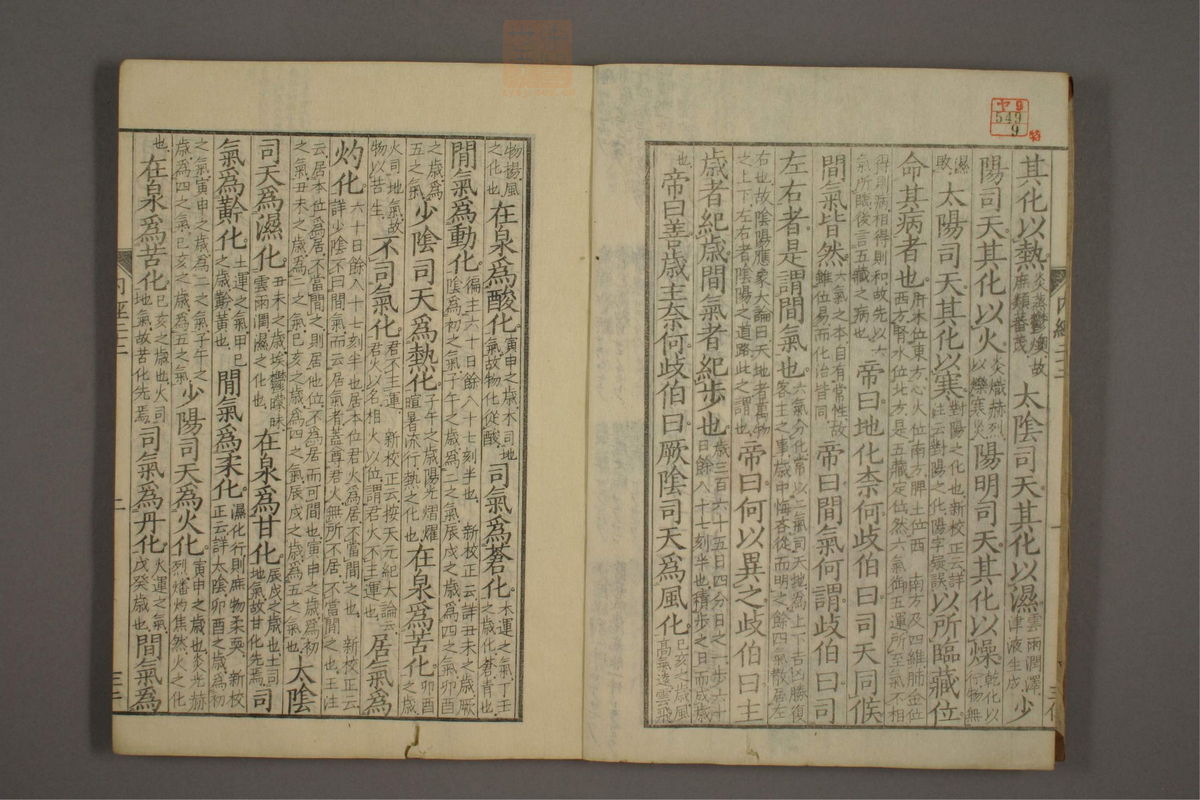 9
549
9
特
其化以熱炎蒸鬱燠故庶類蕃茂太陰司天其化以濕雲雨潤澤津液生成少
陽司天其化以火炎熾赫烈以爍寒災陽明司天其化以燥乾化以行物無
濕敗太陽司天其化以寒對陽之化也新校正云詳注云對陽之化陽字疑誤以所臨藏位
命其病者也肝木位東方心火位南方脾土位西南方及四維肺金位西方腎水位北方是五藏定位然六氣御五運所至氣不相
得則病相得則和故先以六氣所臨後言五藏之病也帝曰地化柰何歧伯曰司天同候
間氣皆然六氣之本自有常性故雖位易而化治皆同帝曰間氣何謂歧伯曰司
左右者是謂間氣也六氣分化常以二氣司天地爲上下吉凶勝復客主之事歲中悔吝從而明之餘四氣散居左
右也故陰陽應象大論曰天地者萬物之上下左右者陰陽之道路此之謂也帝曰何以異之歧伯曰主
歲者紀歲間氣者紀步也歲三百六十五日四分日之一步六十日餘八十七刻半也積步之日而成歲
也帝曰善歲主奈何歧伯曰厥陰司天爲風化巳亥之歲風高氣遠雲飛
物揚風之化也在泉爲酸化寅申之歲木司地氣故物化從酸司氣爲蒼化木運之氣丁壬之歲化蒼青也
閒氣爲動化徧主六十日餘八十七刻半也新校正云詳丑未之歲厥陰爲初之氣子午之歲爲二之氣辰戌之歲爲四之氣卯酉
之歲爲五之氣少陰司天爲熱化子午之歲陽光熠燿暄暑流行熱之化也在泉爲苦化卯酉之歲
火司地氣故物以苦生不司氣化君不主運新校正云按天元紀大論云君火以名相火以位謂君火不主運也居氣爲
灼化六十日餘八十七刻半也居本位君火爲居不當間之也新校正云詳少陰不曰間氣而云居氣者蓋尊君火無所不居不當間之也王注
云居本位爲居不當間之則居他位不爲居而可間也寅申之歲爲初之氣丑未之歲爲二之氣巳亥之歲爲四之氣辰戌之歲爲五之氣也太陰
司天爲濕化丑未之歲埃鬱曚昧雲雨潤濕之化也在泉爲甘化辰戌之歲也土司地氣故甘化先焉司
氣爲黅化土運之氣甲己之歲黅黃也閒氣爲柔化濕化行則庶物柔耎新校正云詳太陰卯酉之歲爲初
之氣寅申之歲爲二之氣子午之歲爲四之氣巳亥之歲爲五之氣少陽司天爲火化寅申之歲也炎光赫烈燔灼焦然火之化
也在泉爲苦化巳亥之歲也火司地氣故苦化先焉司氣爲丹化火運之氣戊癸歲也閒氣爲